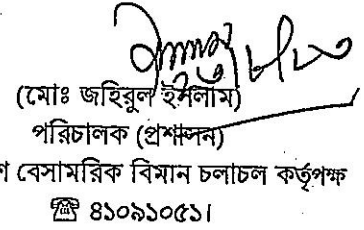 (মোঃ জহিরুল ইসলাম)
পরিচালক (প্রশাসন)
বেসামরিক বিমান চলাচল কর্তৃপক্ষ
☎ ৪১০৯১০৫১।